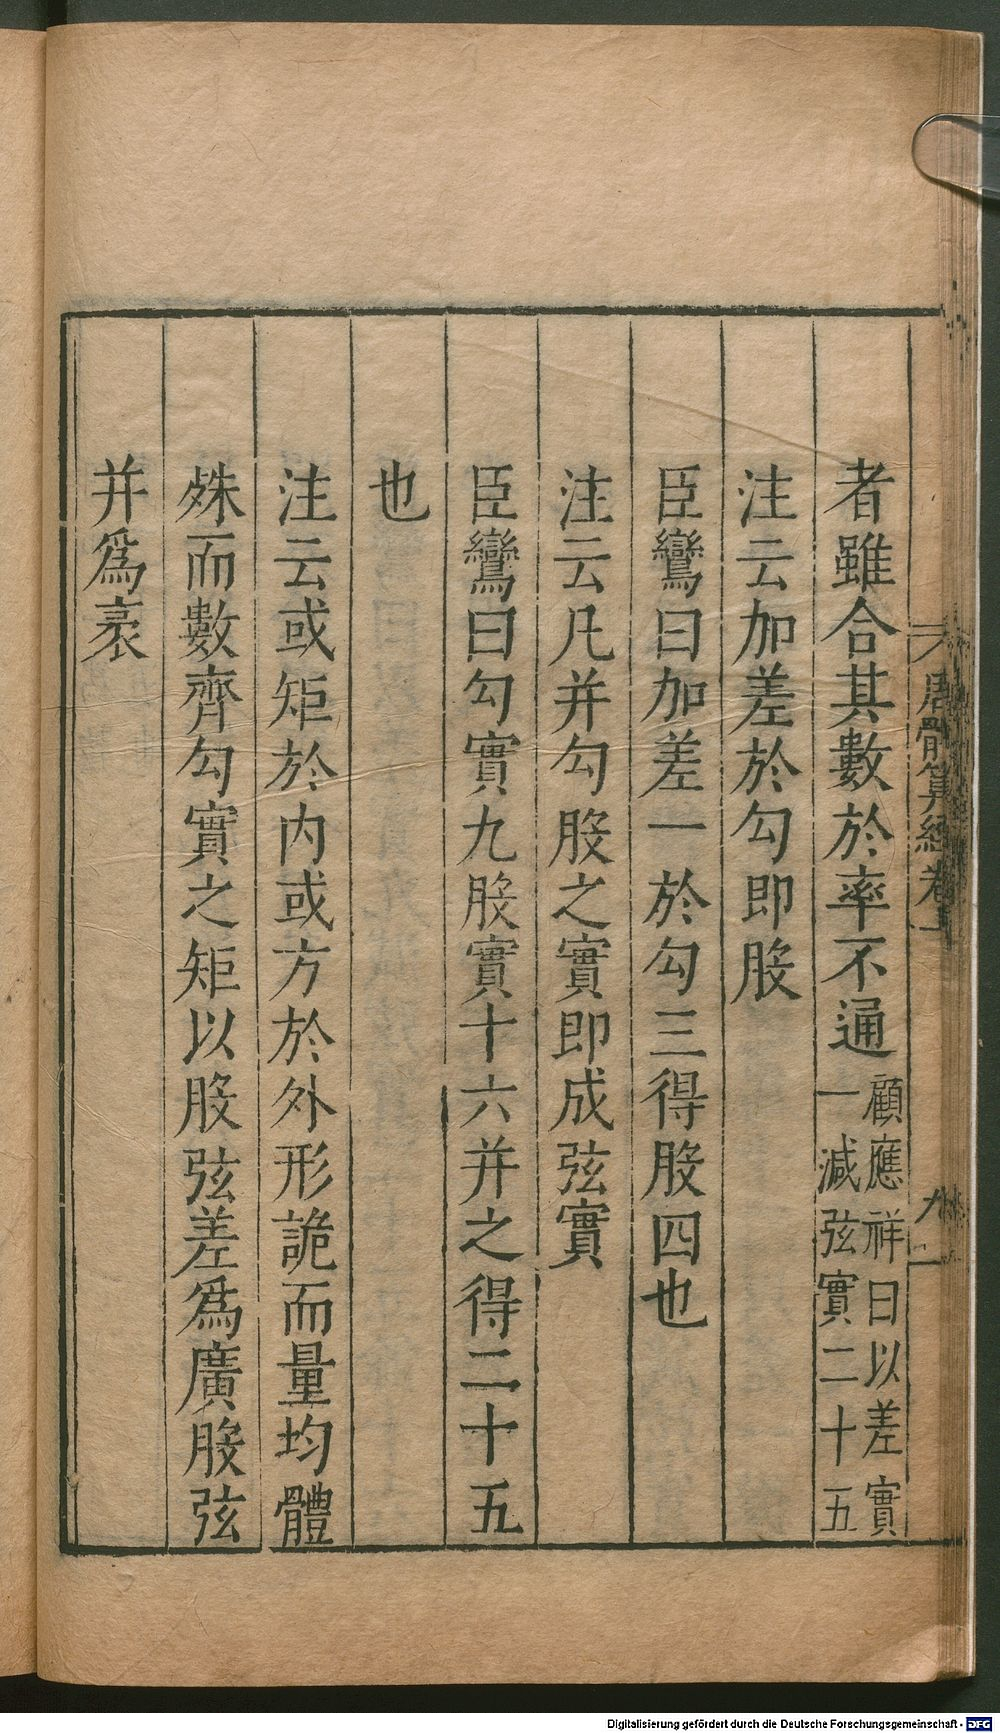 者雖合其數於率不通顧應祥曰以差實一減弦實二十五
注云加差於勾即股
臣鸞曰加差一於勾三得股四也
注云凡并勾股之實即成弦實
臣鸞曰勾實九股實十六并之得二十五
也
注云或矩於内或方於外形詭而量均體
殊而數齊勾實之矩以股弦差爲廣股弦
并爲袤
周髀算經卷上
九
Digitalisierung gefördert durch die Deutsche Forschungsgemeinschaft - DFG